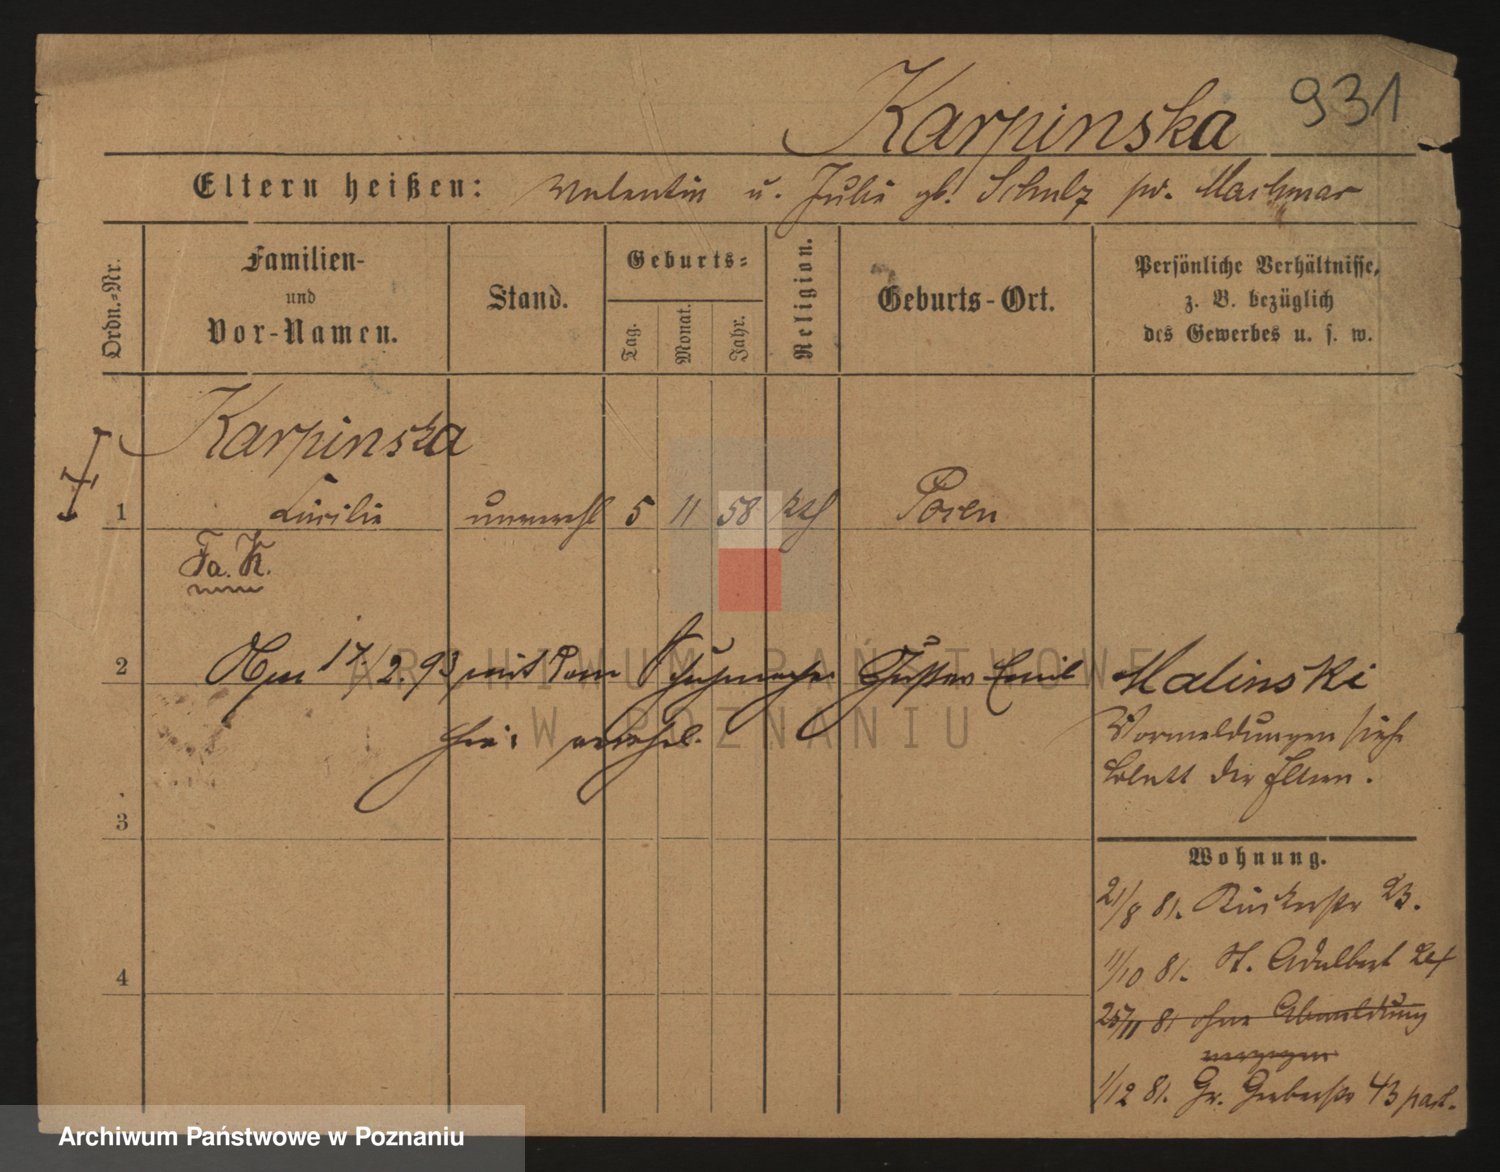 931
Karpinska
Eltern heißen: Valentin u. Julie gb. Schulz
Ordn.-Nr.
Familien-
und
Vor-Namen.
Stand.
Geburts-
Tag.
Monat.
Jahr.
Religion.
Geburts-Ort.
Persönliche Verhältnisse,
z. B. bezüglich
des Gewerbes u. s. w.
Karpinska
1 unverehl 5 11 58 kth Posen
Fa. K.
2 Am 17/2.93 mit dem Schuhmacher Gustav Emil Malinski
hier verehel.
Vormeldungen siehe
Blatt der Eltern.
3
Wohnung.
21/8 81. 23.
11/10 81. St. Adalbert
25/11 81 ohne Abmeldung
verzogen
4
1/12 81. Gr. Gerberstr 43 part.
ARCHIWUM PAŃSTWOWE
W POZNANIU
Archiwum Państwowe w Poznaniu